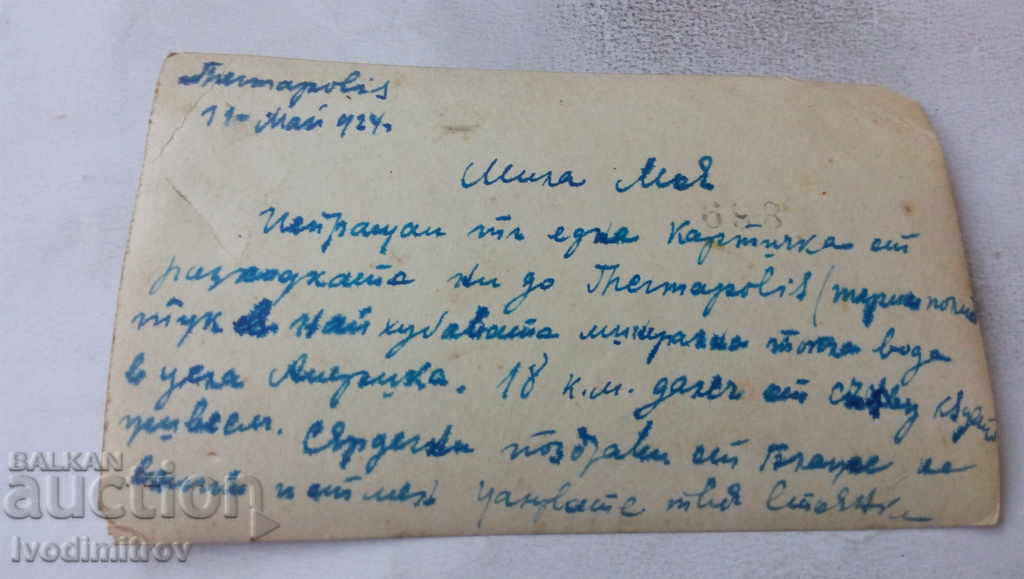 Thermapolis
11 - Май 924.
Мила Моя
698
Испращам ти една картичка от
разходката ни до Thermapolis (термополис
тук е най хубавата минерална топла вода
в цела Америка. 18 к.м. далеч от
живеем. Сърдечни поздрави от
и от мен целувате твоя Стоян
BALKAN
auction
Ivodimitrov